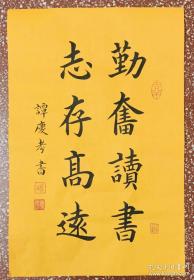 勤奮讀書
志存高遠
譚慶孝書